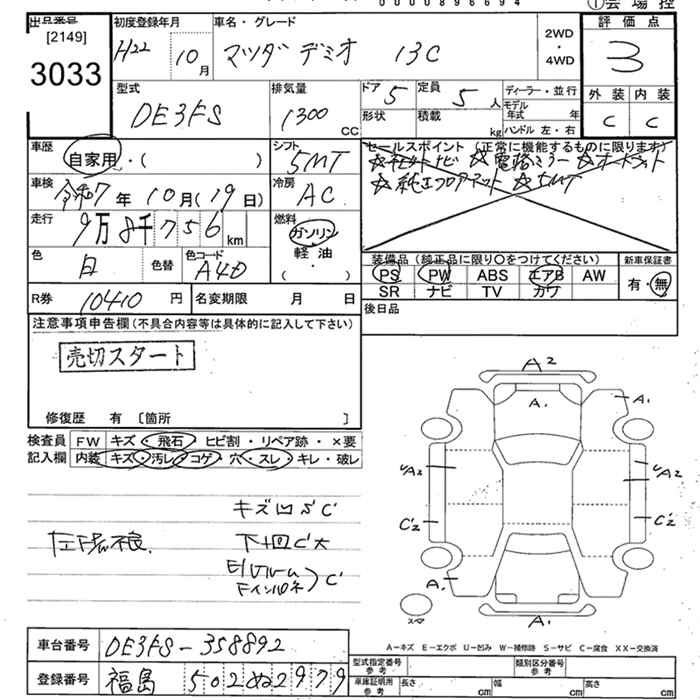 0000896694
①会場控
出品番号 初度登録年月 車名・グレード 2WD・4WD 評価点
[2149]
3033
H22 10月 マツダ デミオ 13C 3
型式 排気量 ドア 5 定員 5人 ディーラー・並行 外装 内装
DE3FS 1300CC 形状 積載 kg モデル年式 年 C C
ハンドル 左・右
車歴 自家用・( ) シフト 5MT セールスポイント(正常に機能するものに限ります)
車検 令和7年10月(19日) 冷房 AC
☆純正フロアマット ☆5MT
走行 9万8千756km 燃料 ガソリン・軽油・( )
色 白 色替 色コード A4D
装備品(純正品に限り○をつけてください) 新車保証書
PS PW ABS エアB AW 有・無
SR ナビ TV カワ
R券 10410円 名変期限 月 日
後日品
注意事項申告欄(不具合内容等は具体的に記入して下さい)
売切スタート
修復歴 有 [箇所 ]
検査員 FW キズ・飛石・ヒビ割・リペア跡・×要
記入欄 内装 キズ・汚レ・コゲ・穴・スレ・キレ・破レ
キズ凹 C
下回C大
C
A2
A1
A1
A2
A2
C2
C2
A1
A1
A-キズ E-エクボ U-凹み W-補修跡 S-サビ C-腐食 XX-交換済
車台番号 DE3FS-358892
登録番号 福島 502ぬ2979
型式指定番号 参考 類別区分番号 参考
車庫証明用 参考 長さ cm 幅 cm 高さ cm